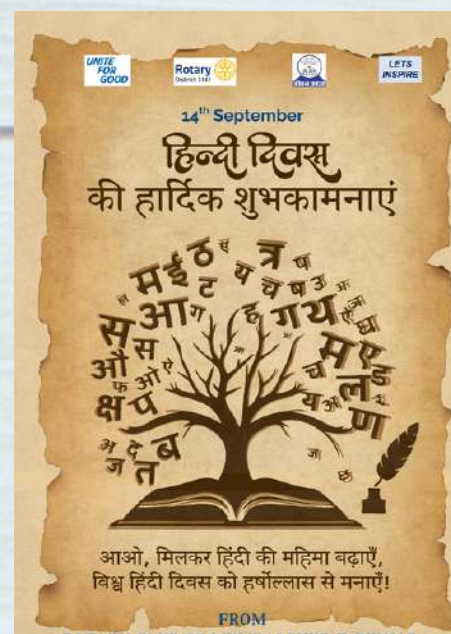 UNITE
FOR
GOOD
Rotary
LETS
INSPIRE
14th September
हिन्दी दिवस
की हार्दिक शुभकामनाएं
म ई ठ ए त्र ष
ट य च ष उ
स आ ग ह ग थ
औ स म ए
फ ओ ऐ च ल ड
क्ष प य अ ण
अ द ब
ज त
आओ, मिलकर हिंदी की महिमा बढ़ाएँ,
विश्व हिंदी दिवस को हर्षोल्लास से मनाएँ!
FROM